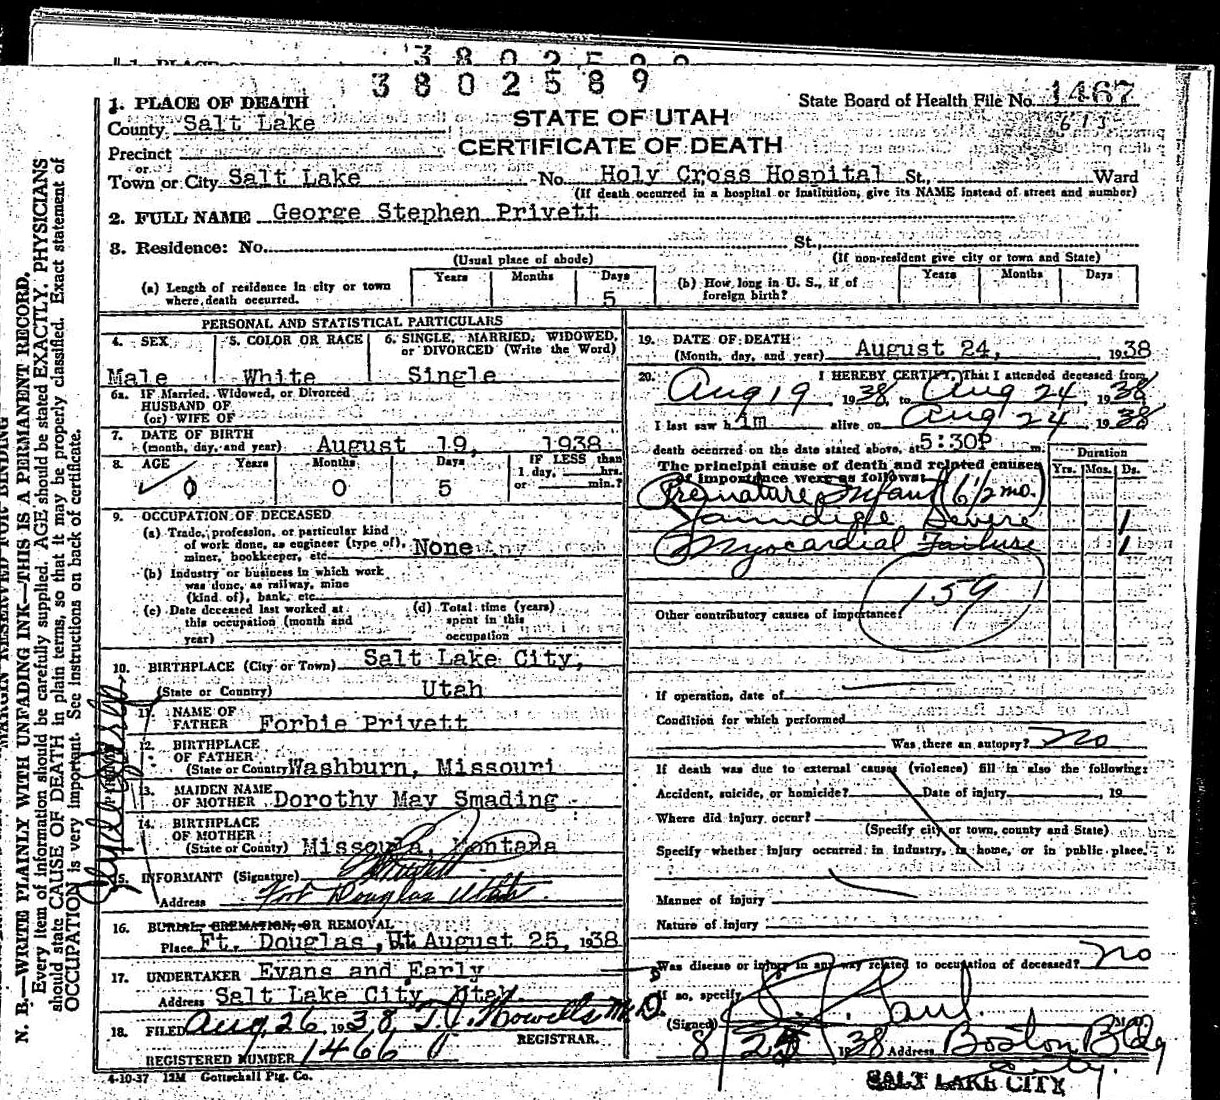 3802589
State Board of Health File No. 1467
1. PLACE OF DEATH
STATE OF UTAH
CERTIFICATE OF DEATH
County Salt Lake
Precinct
or
Town or City Salt Lake No. Holy Cross Hospital St., Ward
(If death occurred in a hospital or institution, give its NAME instead of street and number)
2. FULL NAME George Stephen Privett
3. Residence: No. St.,
(Usual place of abode) (If non-resident give city or town and State)
(a) Length of residence in city or town where death occurred. Years Months Days 5
(b) How long in U. S., if of foreign birth? Years Months Days
PERSONAL AND STATISTICAL PARTICULARS
4. SEX 5. COLOR OR RACE 6. SINGLE, MARRIED, WIDOWED, or DIVORCED (Write the Word)
Male White Single
6a. If Married, Widowed, or Divorced
HUSBAND OF
(or) WIFE OF
7. DATE OF BIRTH
(month, day, and year) August 19, 1938
8. AGE Years Months Days IF LESS than
1 day, hrs.
or min.?
0 0 5
9. OCCUPATION OF DECEASED
(a) Trade, profession, or particular kind
of work done, as engineer (type of),
miner, bookkeeper, etc. None
(b) Industry or business in which work
was done, as railway, mine
(kind of), bank, etc.
(c) Date deceased last worked at
this occupation (month and
year)
(d) Total time (years)
spent in this
occupation
10. BIRTHPLACE (City or Town) Salt Lake City,
(State or Country) Utah
11. NAME OF
FATHER Forbie Privett
12. BIRTHPLACE
OF FATHER
(State or Country) Washburn, Missouri
13. MAIDEN NAME
OF MOTHER Dorothy May Smading
14. BIRTHPLACE
OF MOTHER
(State or Country) Missoula, Montana
15. INFORMANT (Signature)
Address Fort Douglas Utah
16. BURIAL, CREMATION, OR REMOVAL
Place Ft. Douglas, Ut August 25, 1938
17. UNDERTAKER Evans and Early
Address Salt Lake City, Utah.
18. FILED Aug 26 1938, T. J. Howells M.D.
REGISTRAR.
REGISTERED NUMBER 1466
4-10-37 12M Gottschall Ptg. Co.
19. DATE OF DEATH
(Month, day, and year) August 24, 1938
20. I HEREBY CERTIFY, That I attended deceased from
Aug 19 1938, to Aug 24 1938
I last saw him alive on Aug 24 1938
death occurred on the date stated above, at 5:30P m.
The principal cause of death and related causes
of importance were as follows:
Duration
Yrs. Mos. Ds.
Premature Infant (6 1/2 mo.)
Jaundice Severe 1
Myocardial Failure 1
159
Other contributory causes of importance:
If operation, date of
Condition for which performed
Was there an autopsy? No
If death was due to external causes (violence) fill in also the following:
Accident, suicide, or homicide? Date of injury 19
Where did injury occur?
(Specify city or town, county and State)
Specify whether injury occurred in industry, in home, or in public place.
Manner of injury
Nature of injury
Was disease or injury in any way related to occupation of deceased? No
If so, specify
(Signed) Paul
1938 Address Boston Bldg
City.
SALT LAKE CITY
MARGIN RESERVED FOR BINDING
N. B.—WRITE PLAINLY WITH UNFADING INK—THIS IS A PERMANENT RECORD.
Every item of information should be carefully supplied. AGE should be stated EXACTLY. PHYSICIANS
should state CAUSE OF DEATH in plain terms, so that it may be properly classified. Exact statement of
OCCUPATION is very important. See instructions on back of certificate.